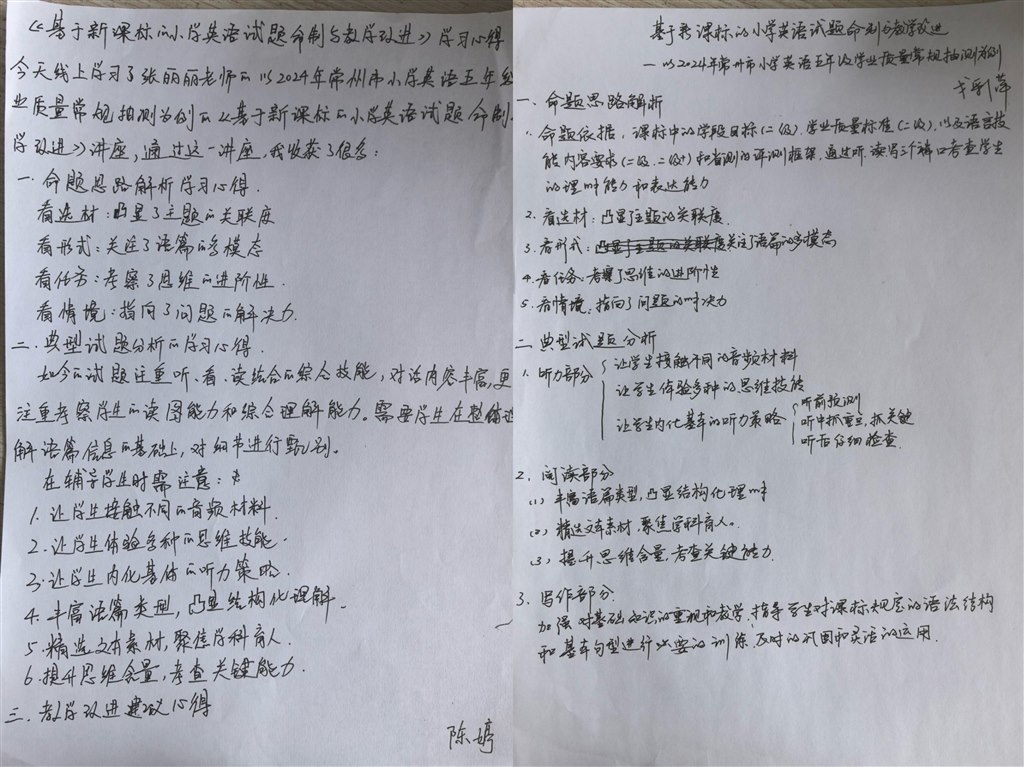 《基于新课标的小学英语试题命制与教学改进》学习心得
今天线上学习了张丽丽老师的以2024年常州市小学英语五年级
业质量常规抽测为例的《基于新课标的小学英语试题命制
学改进》讲座，通过这一讲座，我收获了很多：
一.命题思路解析学习心得.
看选材：凸显了主题的关联度
看形式：关注了语篇的多模态
看任务：考察了思维的进阶性.
看情境：指向了问题的解决力.
二.典型试题分析的学习心得.
如今的试题注重听、看、读结合的综合技能，对话内容丰富，更
注重考察学生的读图能力和综合理解能力。需要学生在整体理
解语篇信息的基础上，对细节进行甄别。
在辅导学生时需注意：
1.让学生接触不同的音频材料.
2.让学生体验多种的思维技能.
3.让学生内化基体的听力策略.
4.丰富语篇类型，凸显结构化理解.
5.精选文本素材，聚焦学科育人.
6.提升思维含量，考查关键能力.
三.教学改进建议心得
陈婷
基于新课标的小学英语试题命制与教学改进
—以2024年常州市小学英语五年级学业质量常规抽测为例
一.命题思路解析
1.命题依据：课标中的学段目标(二级)、学业质量标准(二级)，以及语言技
能内容要求(二级.二级+)和省测的评测框架，通过听.读.写三个板块考查学生
的理解能力和表达能力
2.看选材：凸显了主题的关联度
3.看形式：关注了语篇的多模态
4.看任务：考察了思维的进阶性
5.看情境：指向了问题的解决力
二.典型试题分析
1.听力部分
让学生接触不同的音频材料
让学生体验多种的思维技能
让学生内化基本的听力策略
听前预测
听中抓重点，抓关键
听后仔细检查.
2.阅读部分
(1)丰富语篇类型，凸显结构化理解
(2)精选文本素材，聚焦学科育人.
(3)提升思维含量，考查关键能力.
3.写作部分.
加强对基础知识的重视和教学，指导学生对课标规定的语法结构
和基本句型进行必要的训练，及时的巩固和灵活的运用.